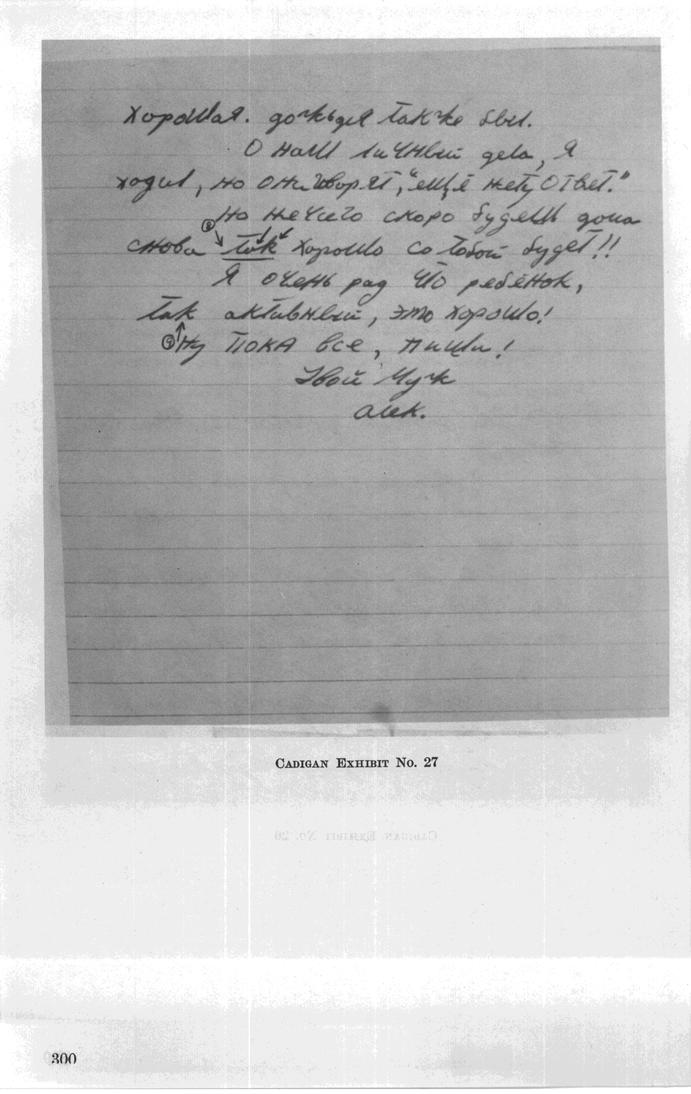 хорошая. дождя также был.
О наш личный дела, я
ходил, но они говорят, "ещё нету ответ."
Но нечего скоро будешь дома
снова так хорошо со тобой будет!!
Я очень рад что ребёнок,
так активный, это хорошо!
Ну пока все, пиши!
Твой Муж
Алек.
CADIGAN EXHIBIT No. 27
300